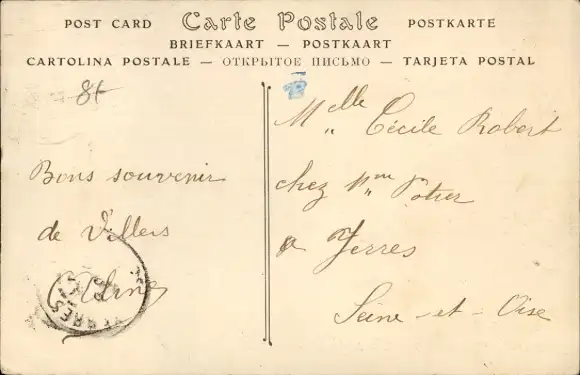 POST CARD Carte Postale POSTKARTE
BRIEFKAART — POSTKAART
CARTOLINA POSTALE — ОТКРЫТОЕ ПИСЬМО — TARJETA POSTAL
Bons souvenir
de Villers
Melle Cécile Robert
chez Mme Potier
a Yerres
Seine-et-Oise
YERRES